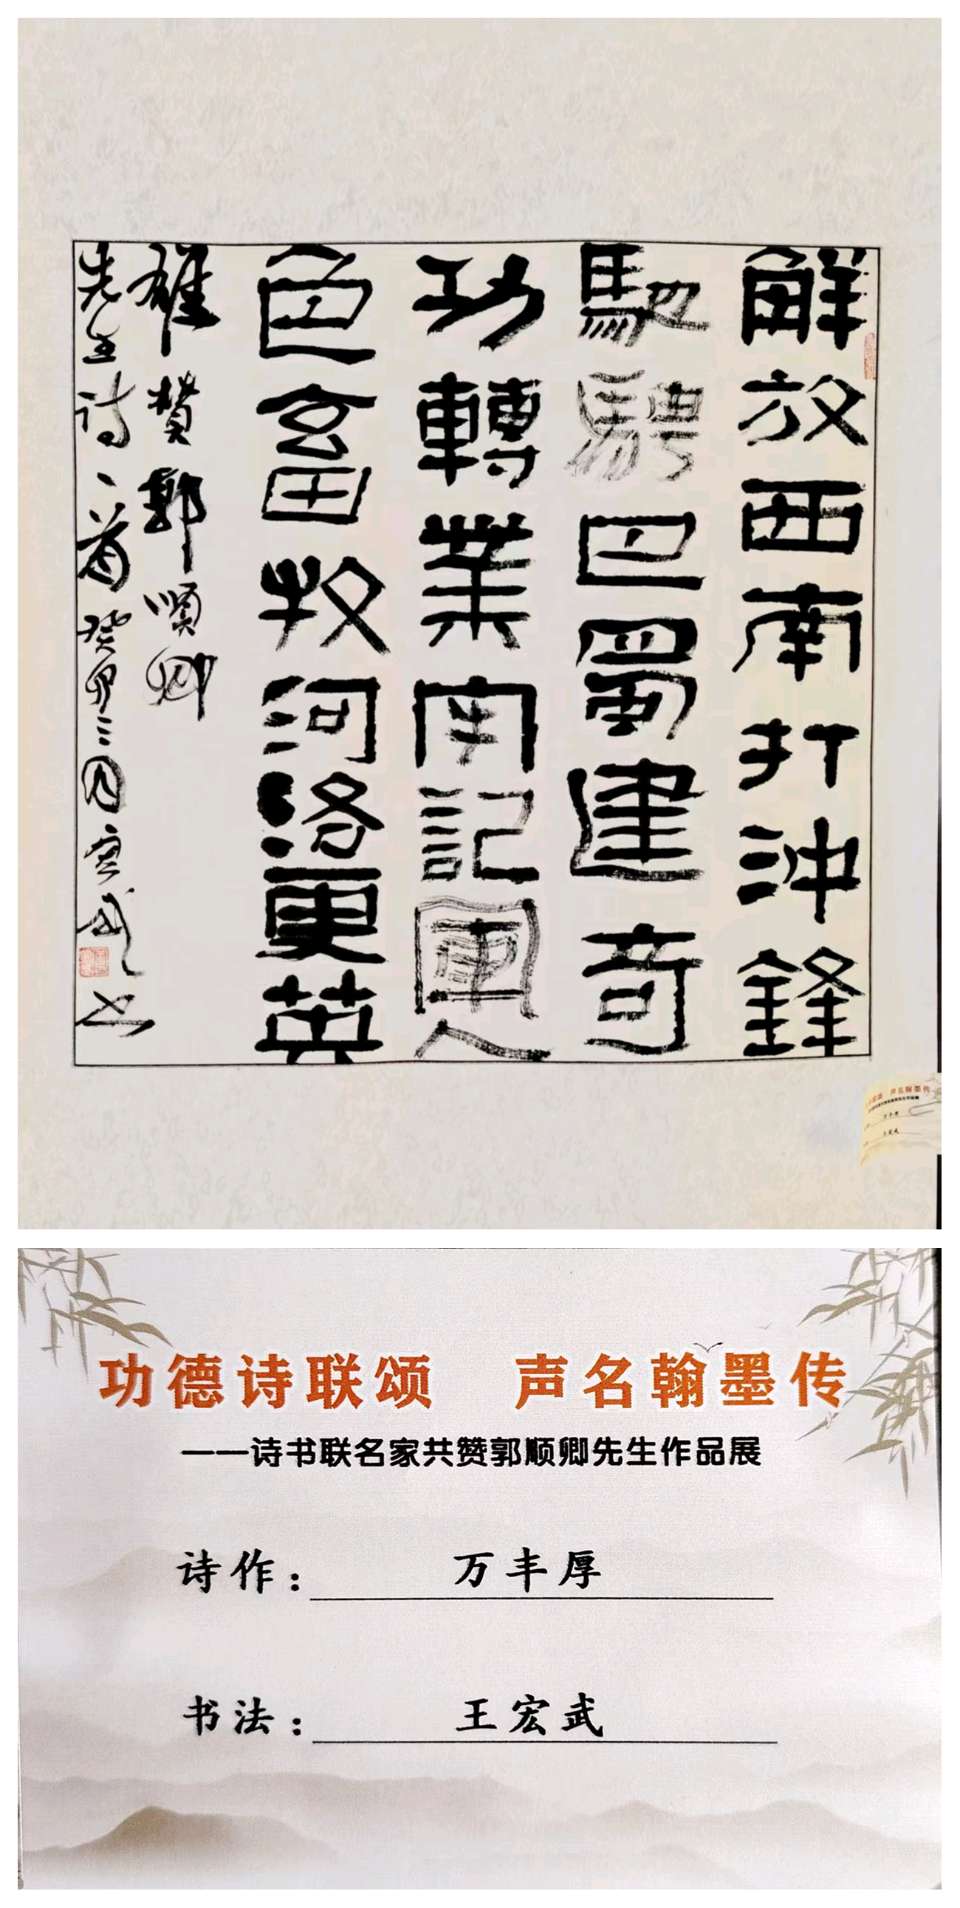 解放西南打冲鋒
馳騁巴蜀建奇
功轉業守記軍人
色畜牧河洛更英
雄 赞郭顺卿
先生诗一首癸卯三月宏武书
功德诗联颂 声名翰墨传
——诗书联名家共赞郭顺卿先生作品展
诗作： 万丰厚
书法： 王宏武